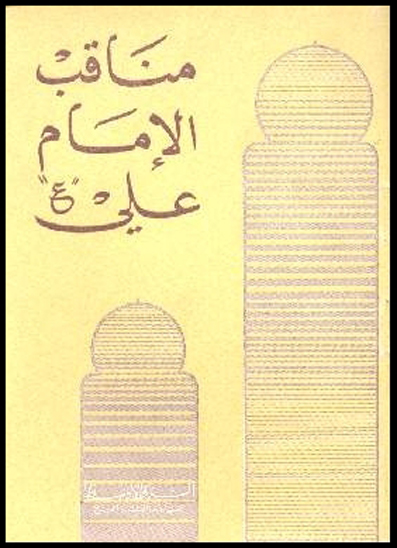 مناقب
الإمام
علي "ع"